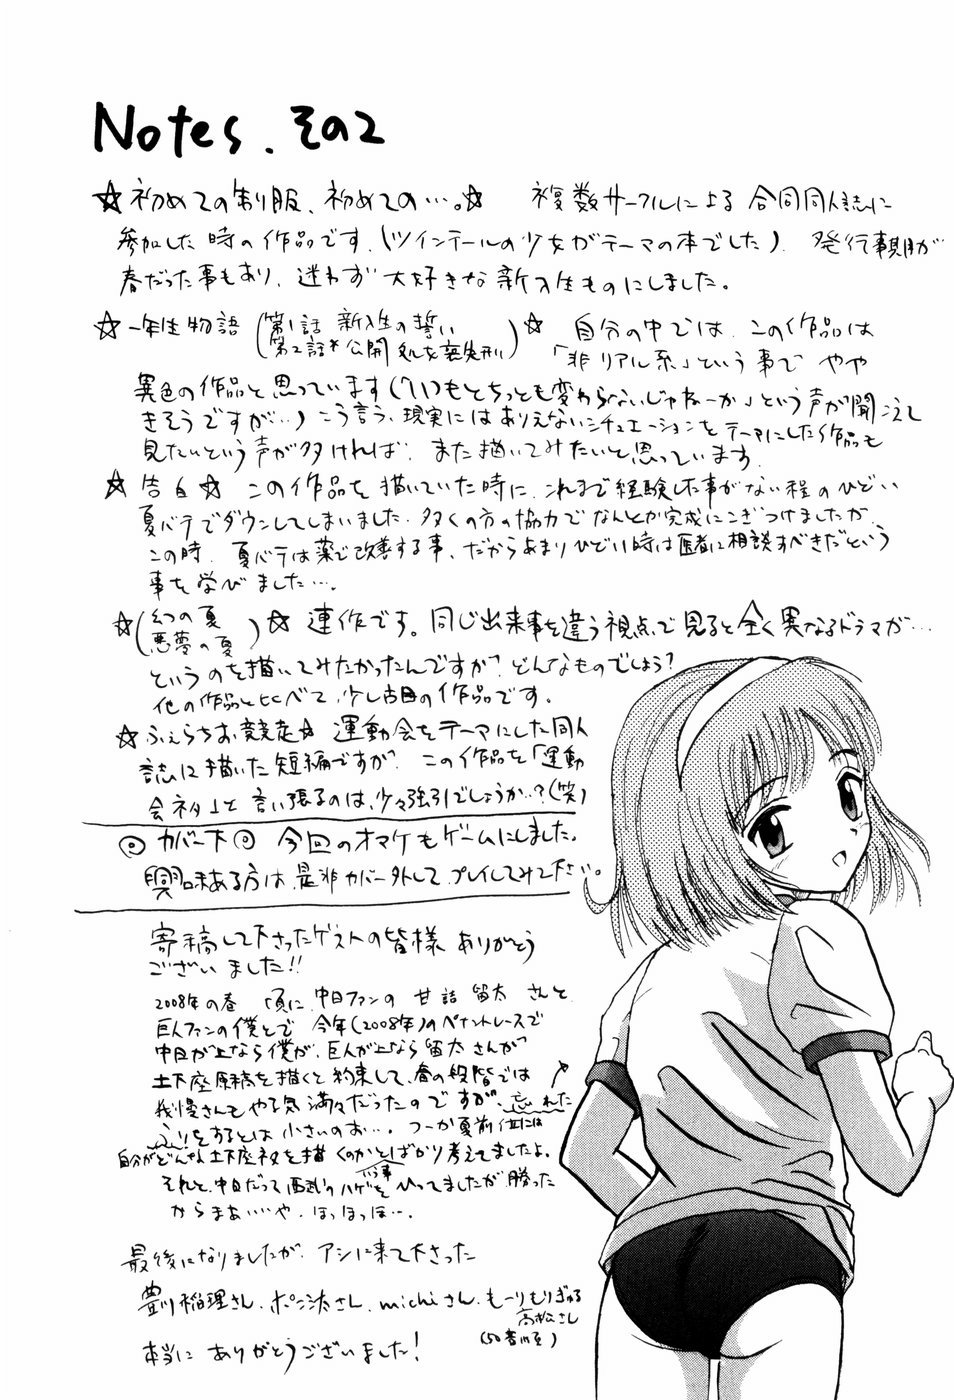 Notes. その2
☆初めての制服、初めての…。☆ 複数サークルによる合同同人誌に
参加した時の作品です。(ツインテールの少女がテーマの本でした)。発行時期が
春だった事もあり、迷わず大好きな新入生ものにしました。
☆一年生物語(第1話 新入生の誓い
第2話 公開処女喪失刑)☆ 自分の中では、この作品は
「非リアル系」という事で やや
異色の作品と思っています(「いつもとちっとも変わらないじゃねーか」という声が聞こえて
きそうですが…)こう言う、現実にはありえないシチュエーションをテーマにした作品も
見たいという声が多ければ、また描いてみたいと思っています。
☆告白☆ この作品を描いていた時に、これまで経験した事がない程のひどい
夏バテでダウンしてしまいました。多くの方の協力でなんとか完成にこぎつけましたが、
この時、夏バテは薬で改善する事、だからあまりひどい時は医者に相談すべきだという
事を学びました…。
☆(幻の夏
悪夢の夏)☆ 連作です。同じ出来事を違う視点で見ると全く異なるドラマが…
というのを描いてみたかったんですが、どんなものでしょう?
他の作品と比べて、少し古目の作品です。
☆ふぇらちお競走☆ 運動会をテーマにした同人
誌に描いた短編ですが、この作品を「運動
会ネタ」と言い張るのは、少々強引でしょうか…?(笑)
◎カバー下◎ 今回のオマケもゲームにしました。
興味ある方は、是非カバー外してプレイしてみて下さい。
寄稿して下さったゲストの皆様 ありがとう
ございました!!
2008年の春頃に、中日ファンの 甘詰留太さんと
巨人ファンの僕とで 今年(2008年)のペナントレースで
中日が上なら僕が、巨人が上なら留太さんが
土下座原稿を描くと約束して、春の段階では
我慢さんもやる気満々だったのですが、忘れた
ふりをするとは小さいのお…。つーか夏前位には
自分がどんな土下座ネタを描くのかとばかり考えてましたよ。
それと、中日だって西武の
ましたが勝った
からまぁいいや、ほっほっほ…。
最後になりましたが、アシに来て下さった
豊川稲理さん、ポン汰さん、michiさん、もーりもりぎゅる
高松さん
(50音順)
本当に ありがとうございました!